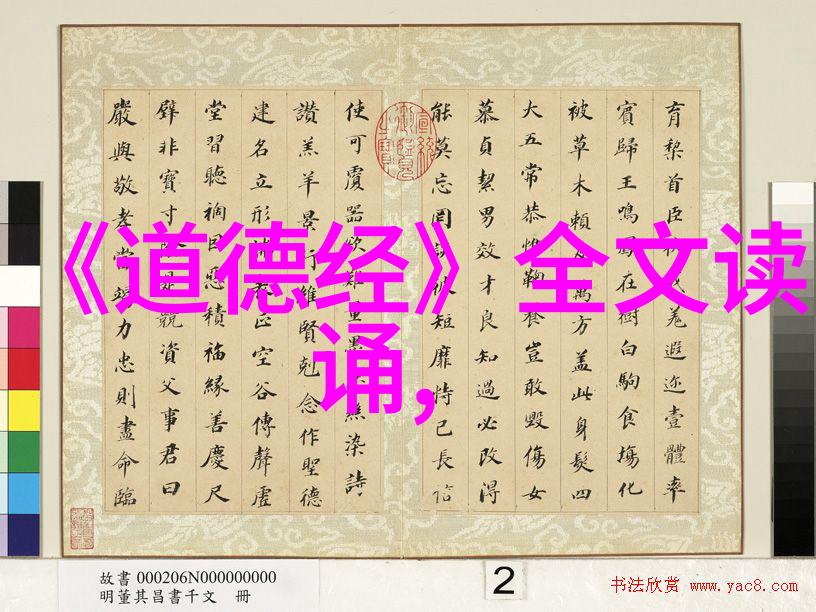 《道德经》全文读
诵,
育黎首臣伏戎羌遐迩壹體率
賓歸王鳴鳳在樹白駒食場化
被草木賴及萬方蓋此身髮四
大五常恭惟鞠養豈敢毀傷女
慕貞絜男效才良知過必改得
能莫忘罔談彼短靡恃己長信
使可覆器欲難量墨悲絲染詩
讚羔羊景行維賢剋念作聖德
建名立形端表正空谷傳聲虛
堂習聽禍因惡積福緣善慶尺
璧非寶寸陰是競資父事君曰
嚴與敬孝當竭力忠則盡命臨
故書000206N000000000
明董其昌書千文 冊
2
书法欣赏 www.yac8.com